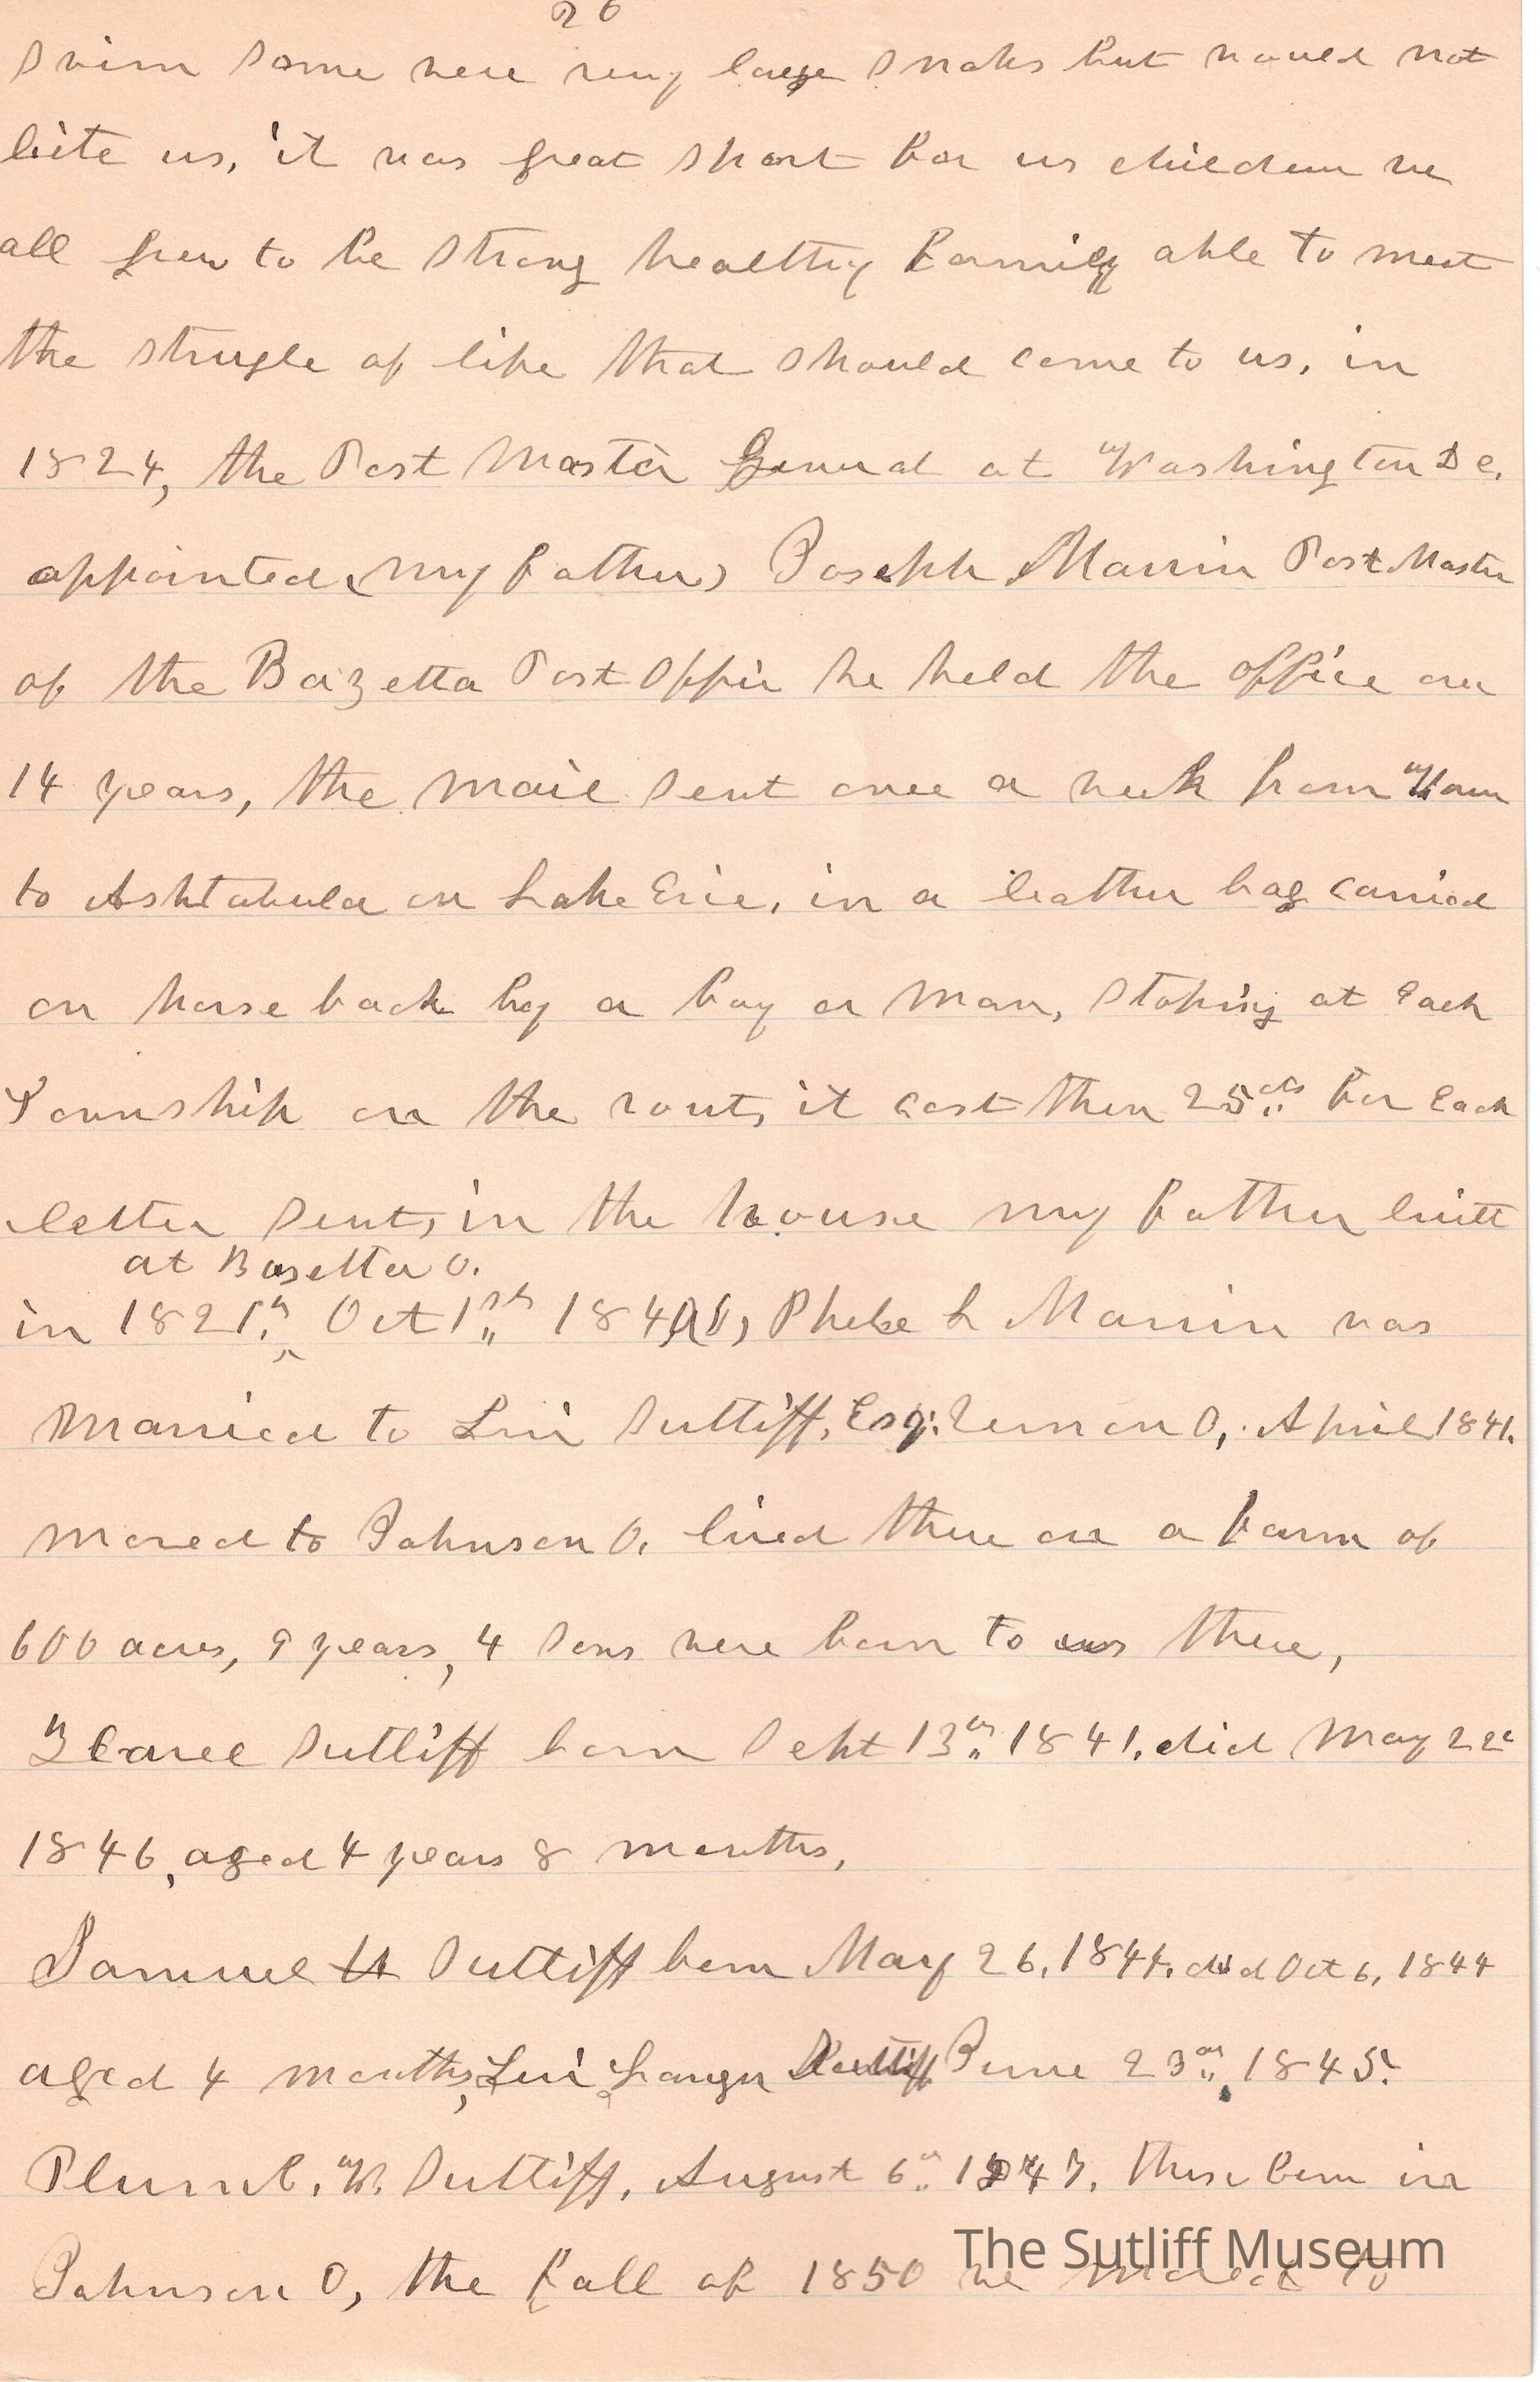 26
swim some were very large snakes but would not
bite us, it was great sport for us children we
all grew to be strong healthy family able to meet
the strugle of life that should come to us, in
1824, the Post Master General at Washington D C.
appointed (my father) Joseph Marvin Post Master
of the Bazetta Post Office he held the office on
14 years, the mail sent once a week from Warren
to Ashtabula on Lake Erie, in a leather bag carried
on horse back by a boy or man, stoping at each
Township on the rout, it cost then 25cts for each
letter sent, in the house my father built
at Bazetta O.
in 1821th Oct 1st 1840, Phebe L Marvin was
married to Levi Sutliff, Esq. Vernon O, April 1841.
moved to Johnson O. lived there on a farm of
600 acres, 9 years, 4 sons were born to us there,
Sutliff born Sept 13th 1841. died May 22d
1846, aged 4 years 8 months,
Samuel Sutliff born May 26, 1844. died Oct 6, 1844
aged 4 months, Levi Sutliff June 23rd, 1845.
Plumb. W. Sutliff, August 6th 1847. these born in
Johnson O, the fall of 1850 we moved to
The Sutliff Museum